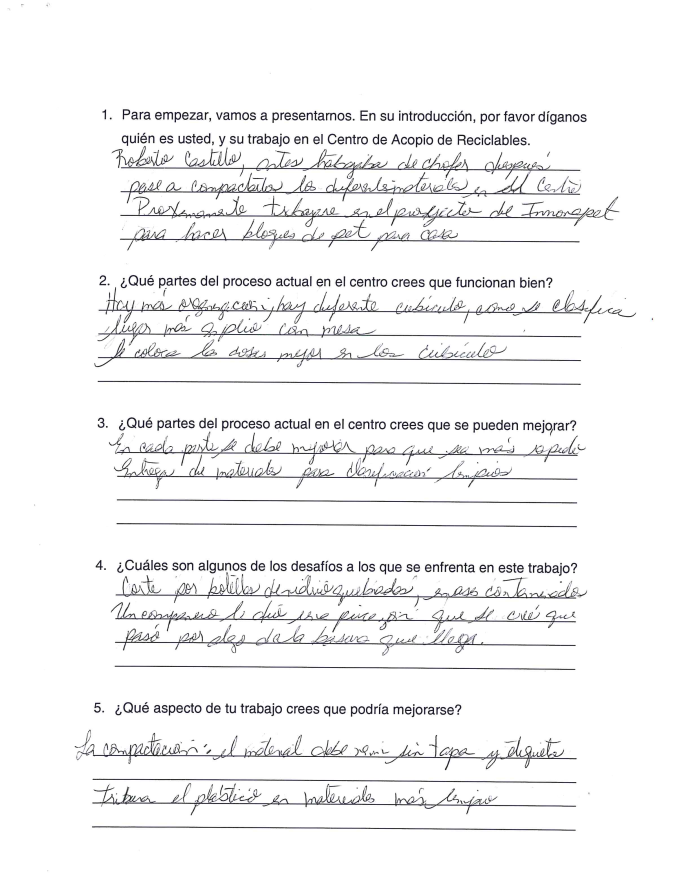 1. Para empezar, vamos a presentarnos. En su introducción, por favor díganos
quién es usted, y su trabajo en el Centro de Acopio de Reciclables.
Roberto Castillo, antes trabajaba de chofer después
pase a compactador los diferentes materiales en el Centro
Proximamente trabajare en el projecto de Innovapet
para hacer bloques de pet para casa
2. ¿Qué partes del proceso actual en el centro crees que funcionan bien?
Hay más organización, hay diferente cubiculo, como se clasifica
lugar más amplio con mesa
Se coloca las cosas mejor en los cubiculo
3. ¿Qué partes del proceso actual en el centro crees que se pueden mejorar?
En cada parte se debe mejorar para que sea más rapido
Entrega de materiales para clasificación limpios
4. ¿Cuáles son algunos de los desafíos a los que se enfrenta en este trabajo?
Corte por botellas de vidrio quebradas, envases contaminados
Un compañero le dió una que se creé que
pasó por algo de la basura que llega.
5. ¿Qué aspecto de tu trabajo crees que podría mejorarse?
La compactación: el material debe venir sin tapa y etiqueta
el plástico en materiales más limpio